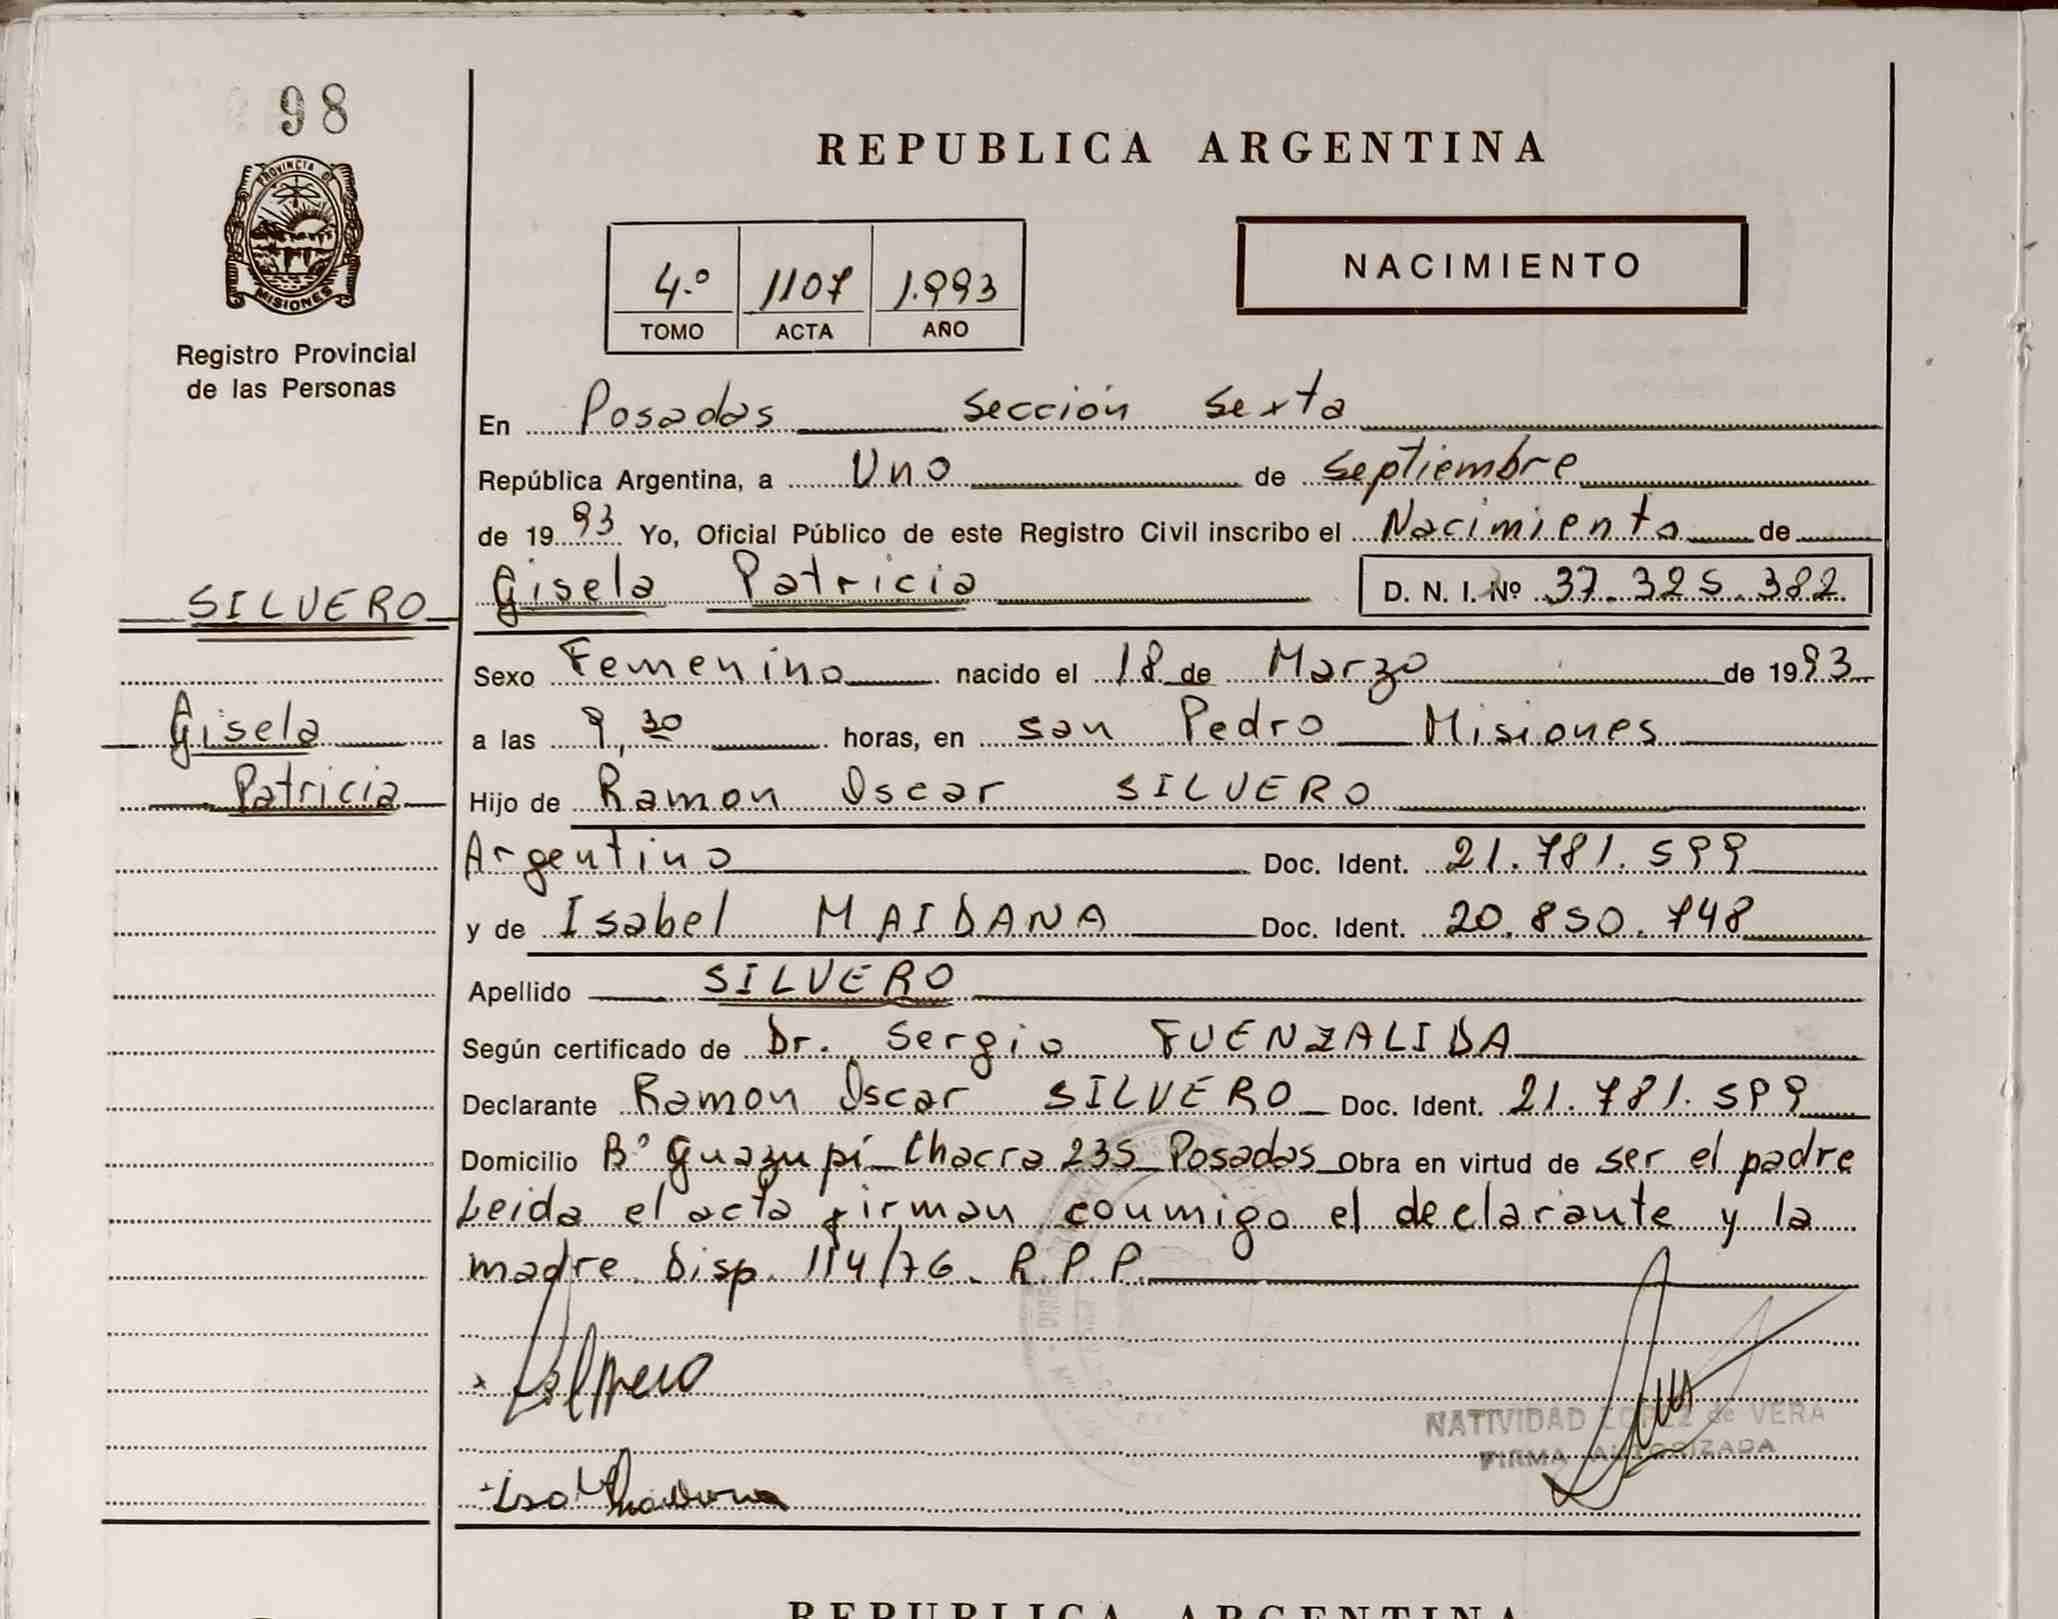 98
PROVINCIA DE
MISIONES
Registro Provincial
de las Personas
SILVERO
Gisela
Patricia
REPUBLICA ARGENTINA
4.º 1107 1.993
TOMO ACTA AÑO
NACIMIENTO
En Posadas Sección Sexta
República Argentina, a Uno de Septiembre
de 1993 Yo, Oficial Público de este Registro Civil inscribo el Nacimiento de
Gisela Patricia D. N. I. Nº 37.325.382
Sexo Femenino nacido el 18 de Marzo de 1993
a las 9,30 horas, en San Pedro Misiones
Hijo de Ramon Oscar SILVERO
Argentino Doc. Ident. 21.781.599
y de Isabel MAIDANA Doc. Ident. 20.850.748
Apellido SILVERO
Según certificado de Dr. Sergio FUENZALIDA
Declarante Ramon Oscar SILVERO Doc. Ident. 21.781.599
Domicilio Bº Guazupí Chacra 235 Posadas Obra en virtud de ser el padre
Leida el acta firman conmigo el declarante y la
madre. Disp. 114/76. R.P.P.
NATIVIDAD LOPEZ de VERA
FIRMA AUTORIZADA
REPUBLICA ARGENTINA